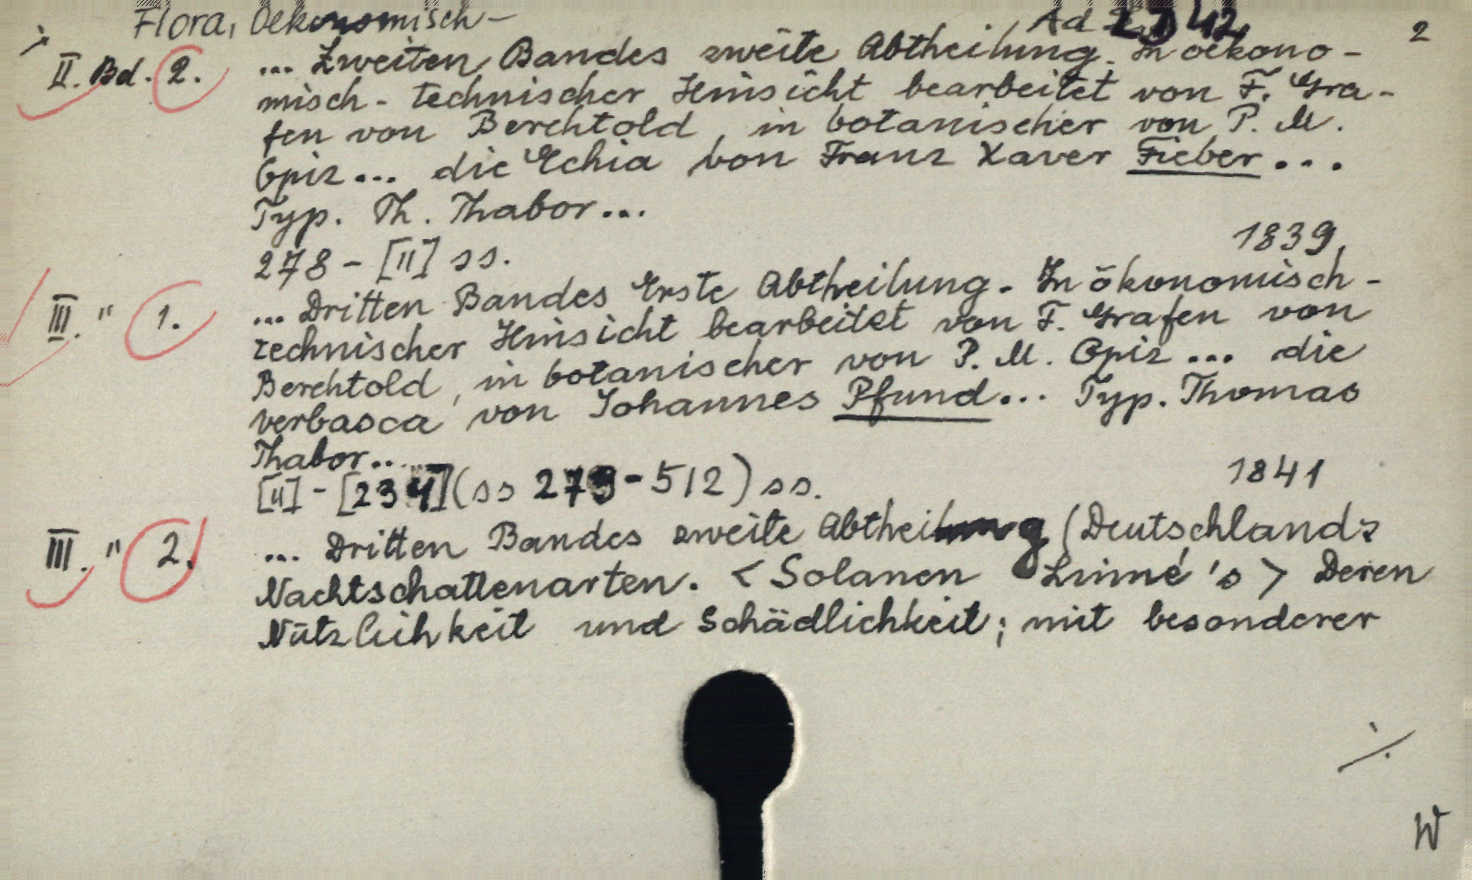 Flora, Oekonomisch-
Ad 2742 2
II. Bd. 2. ... Zweiten Bandes zweite Abtheilung. In oekono-
misch-technischer Hinsicht bearbeitet von F. Gra-
fen von Berchtold, in botanischer von P. M.
Opiz... die Echia von Franz Xaver Fieber...
Typ. Th. Thabor...
1839,
278 - [II] ss.
III. " 1. ... Dritten Bandes Erste Abtheilung. In ökonomisch-
technischer Hinsicht bearbeitet von F. Grafen von
Berchtold, in botanischer von P. M. Opiz... die
verbasca von Johannes Pfund... Typ. Thomas
Thabor...
1841
[II] - [234] (ss 279-512) ss.
III. " 2. ... Dritten Bandes zweite Abtheilung (Deutschlands
Nachtschattenarten. <Solanen Linné's> Deren
Nützlichkeit und Schädlichkeit; mit besonderer
./.
W